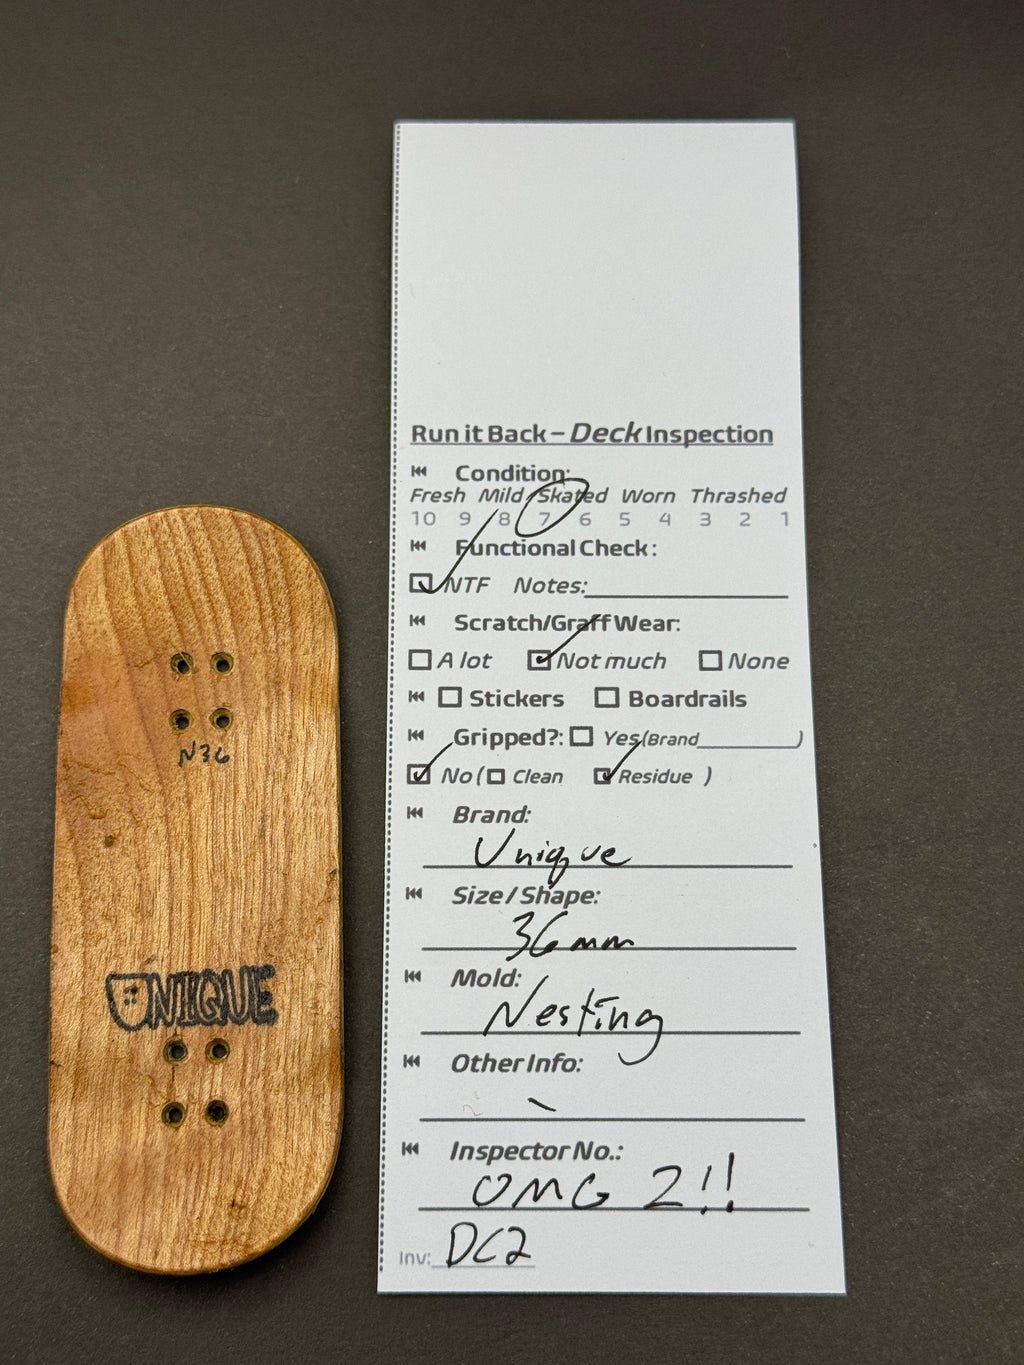 Run it Back – Deck Inspection
Condition:
Fresh Mild Skated Worn Thrashed
10 9 8 7 6 5 4 3 2 1
Functional Check:
NTF Notes:
Scratch/Graff Wear:
A lot Not much None
Stickers Boardrails
Gripped?: Yes(Brand )
No ( Clean Residue )
Brand:
Unique
Size / Shape:
36mm
Mold:
Nesting
Other Info:
Inspector No.:
OMG 2!!
Inv: DC2
N36
UNIQUE